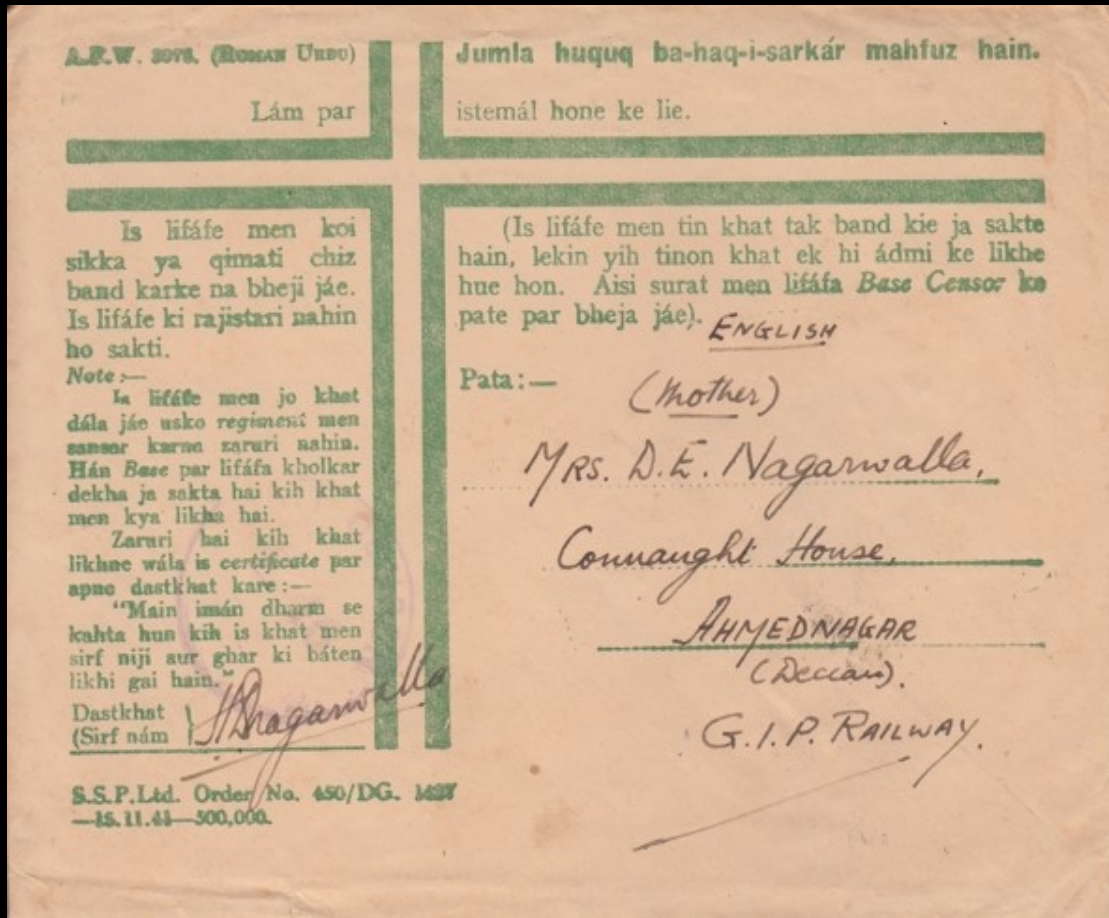 A.F.W. 3078. (ROMAN URDU)
Jumla huquq ba-haq-i-sarkár mahfuz hain.
Lám par
istemál hone ke lie.
Is lifáfe men koi
sikka ya qimati chiz
band karke na bheji jáe.
Is lifáfe ki rajistari nahin
ho sakti.
Note :—
Is lifáfe men jo khat
dála jáe usko regiment men
sansor karne zaruri nahin.
Hán Base par lifáfa kholkar
dekha ja sakta hai kih khat
men kya likha hai.
Zaruri hai kih khat
likhne wála is certificate par
apne dastkhat kare :—
"Main imán dharm se
kahta hun kih is khat men
sirf niji aur ghar ki báten
likhi gai hain."
Dastkhat
(Sirf nám
Nagarwalla
S.S.P.Ltd. Order No. 450/DG. 1427
—15.11.41—500,000.
(Is lifáfe men tin khat tak band kie ja sakte
hain, lekin yih tinon khat ek hi ádmi ke likhe
hue hon. Aisi surat men lifáfa Base Censor ke
pate par bheja jáe).
ENGLISH
Pata :—
(Mother)
MRS. D.E. Nagarwalla,
Connaught House,
AHMEDNAGAR
(Deccan).
G.I.P. RAILWAY.